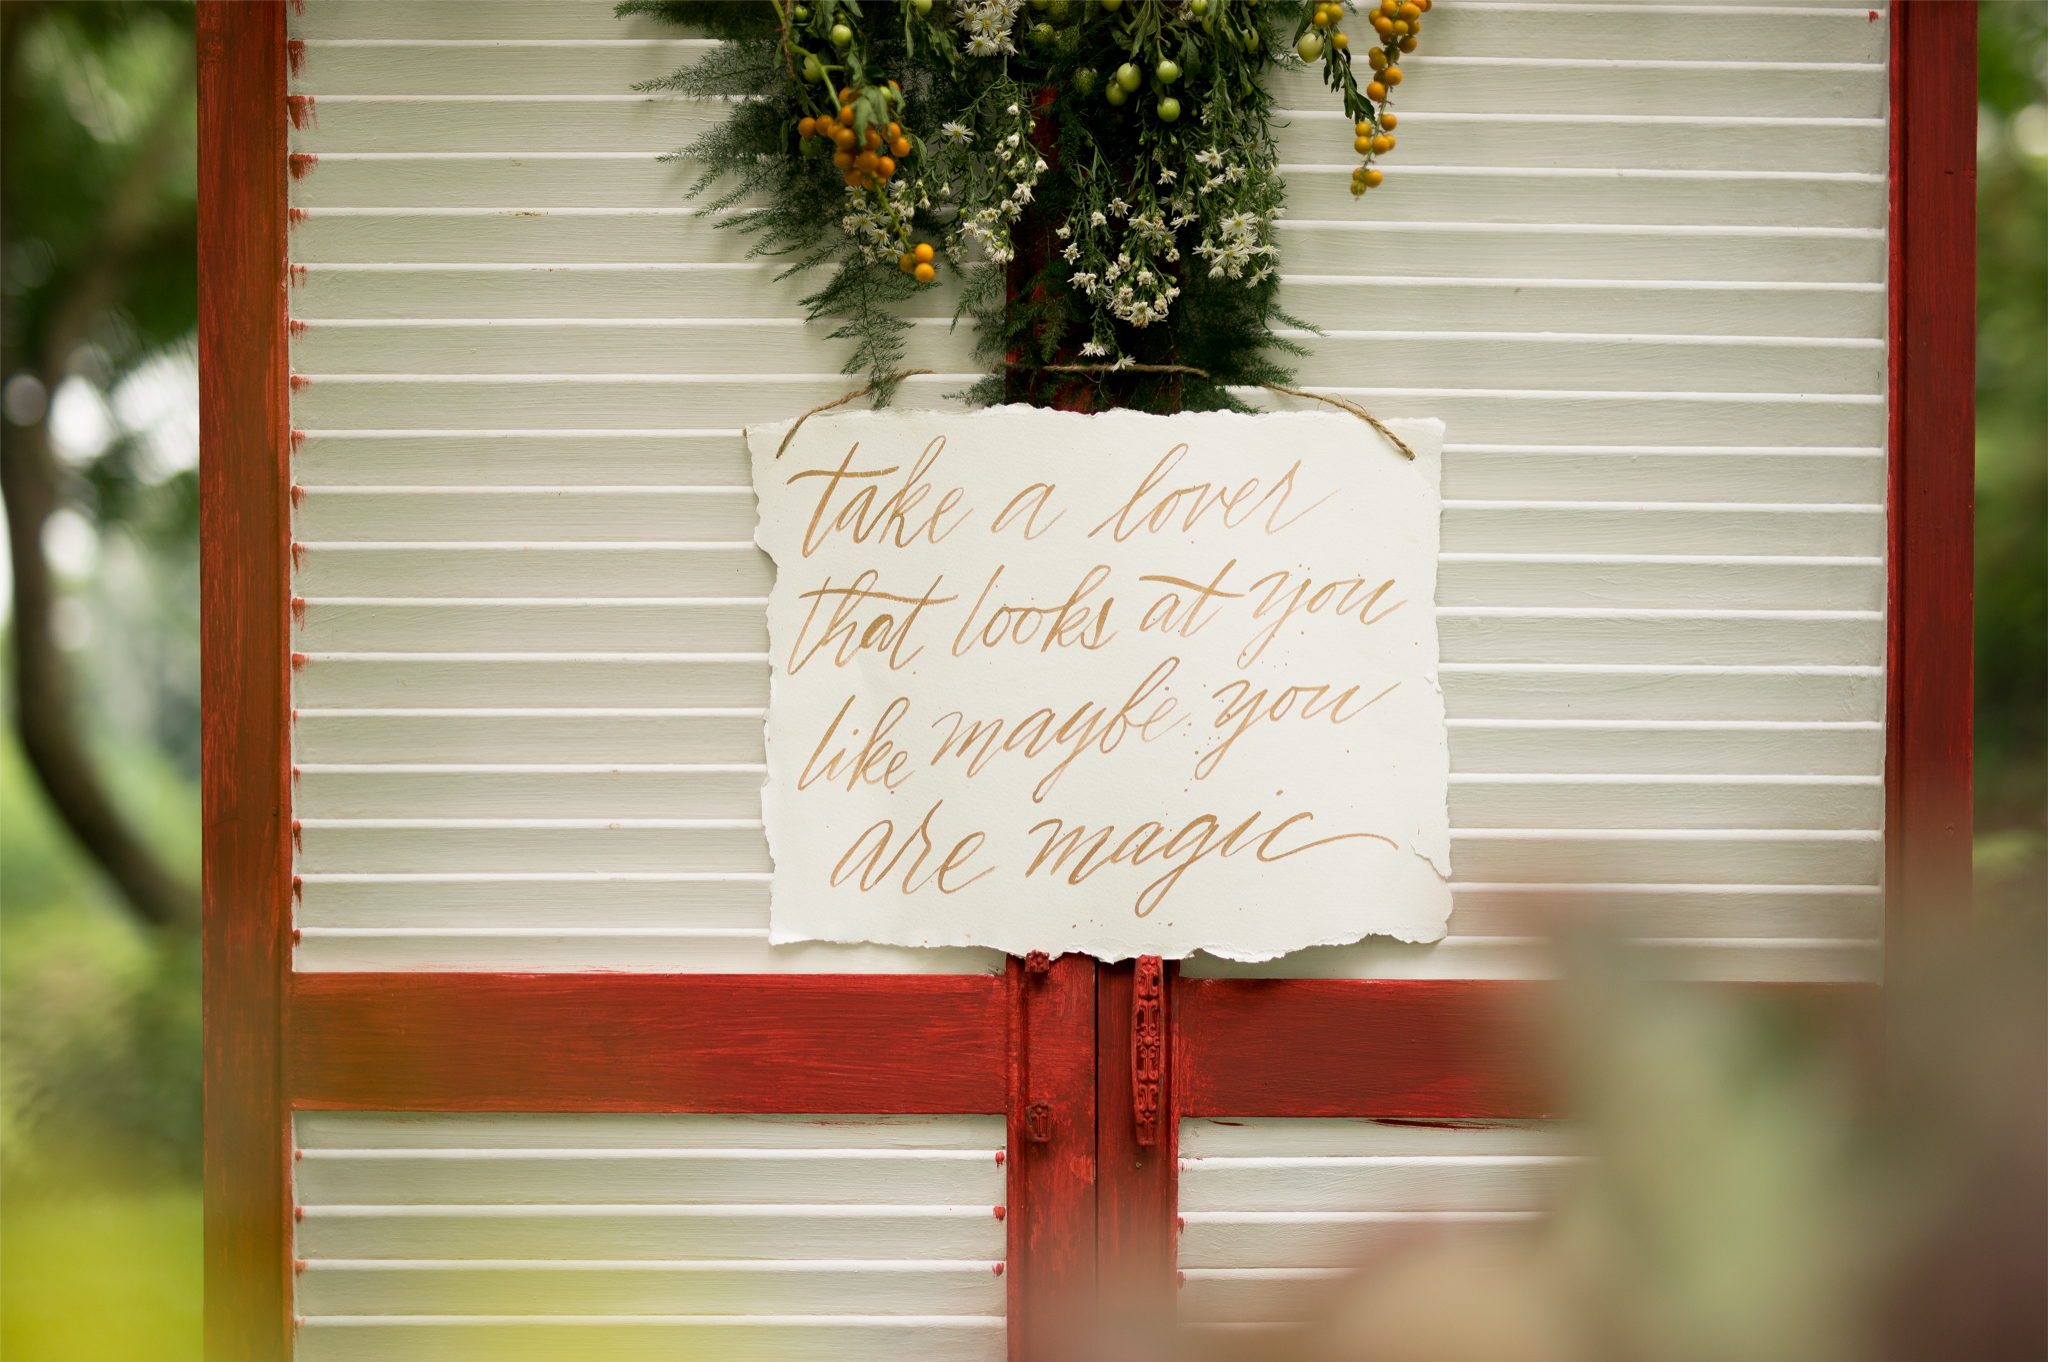 take a lover
that looks at you
like maybe you
are magic